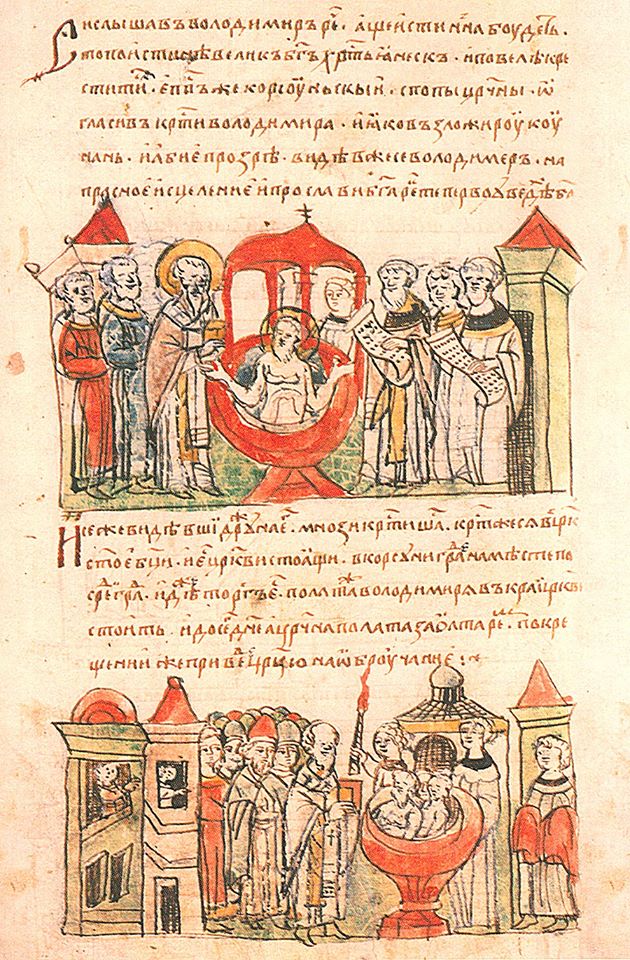 И слышавъ володимиръ ре҃. аще истинна боудеть.
то поистинѣ великъ б҃гъ хр҃тьꙗнескъ. и повелѣ кре
стити сѧ. еп҃пъ же корсоуньскыи. с попы цр҃цны. ѡ
гласивъ кр҃ти володимира. и ꙗко възложи роукоу
на нь. и абие прозрѣ. видѣвже се володимеръ. на
прасное исцеление и прослави б҃га рек҃ то первое
И се же видѣвши дружина е҃. мнози кр҃тиша сѧ. кр҃ти же сѧ в црк҃
стое б҃ци. и е҃ црк҃ви стоѧщи. в корсуни градѣ на мѣсте по
средѣ гра. идѣже торгъ. полата володимирѧ въ краи црк҃ве
стоить. и до сег҃ дн҃е. а цр҃цна полата за ѡлтаре. по кре
щении же приведе цр҃цю на ѡброучание :~